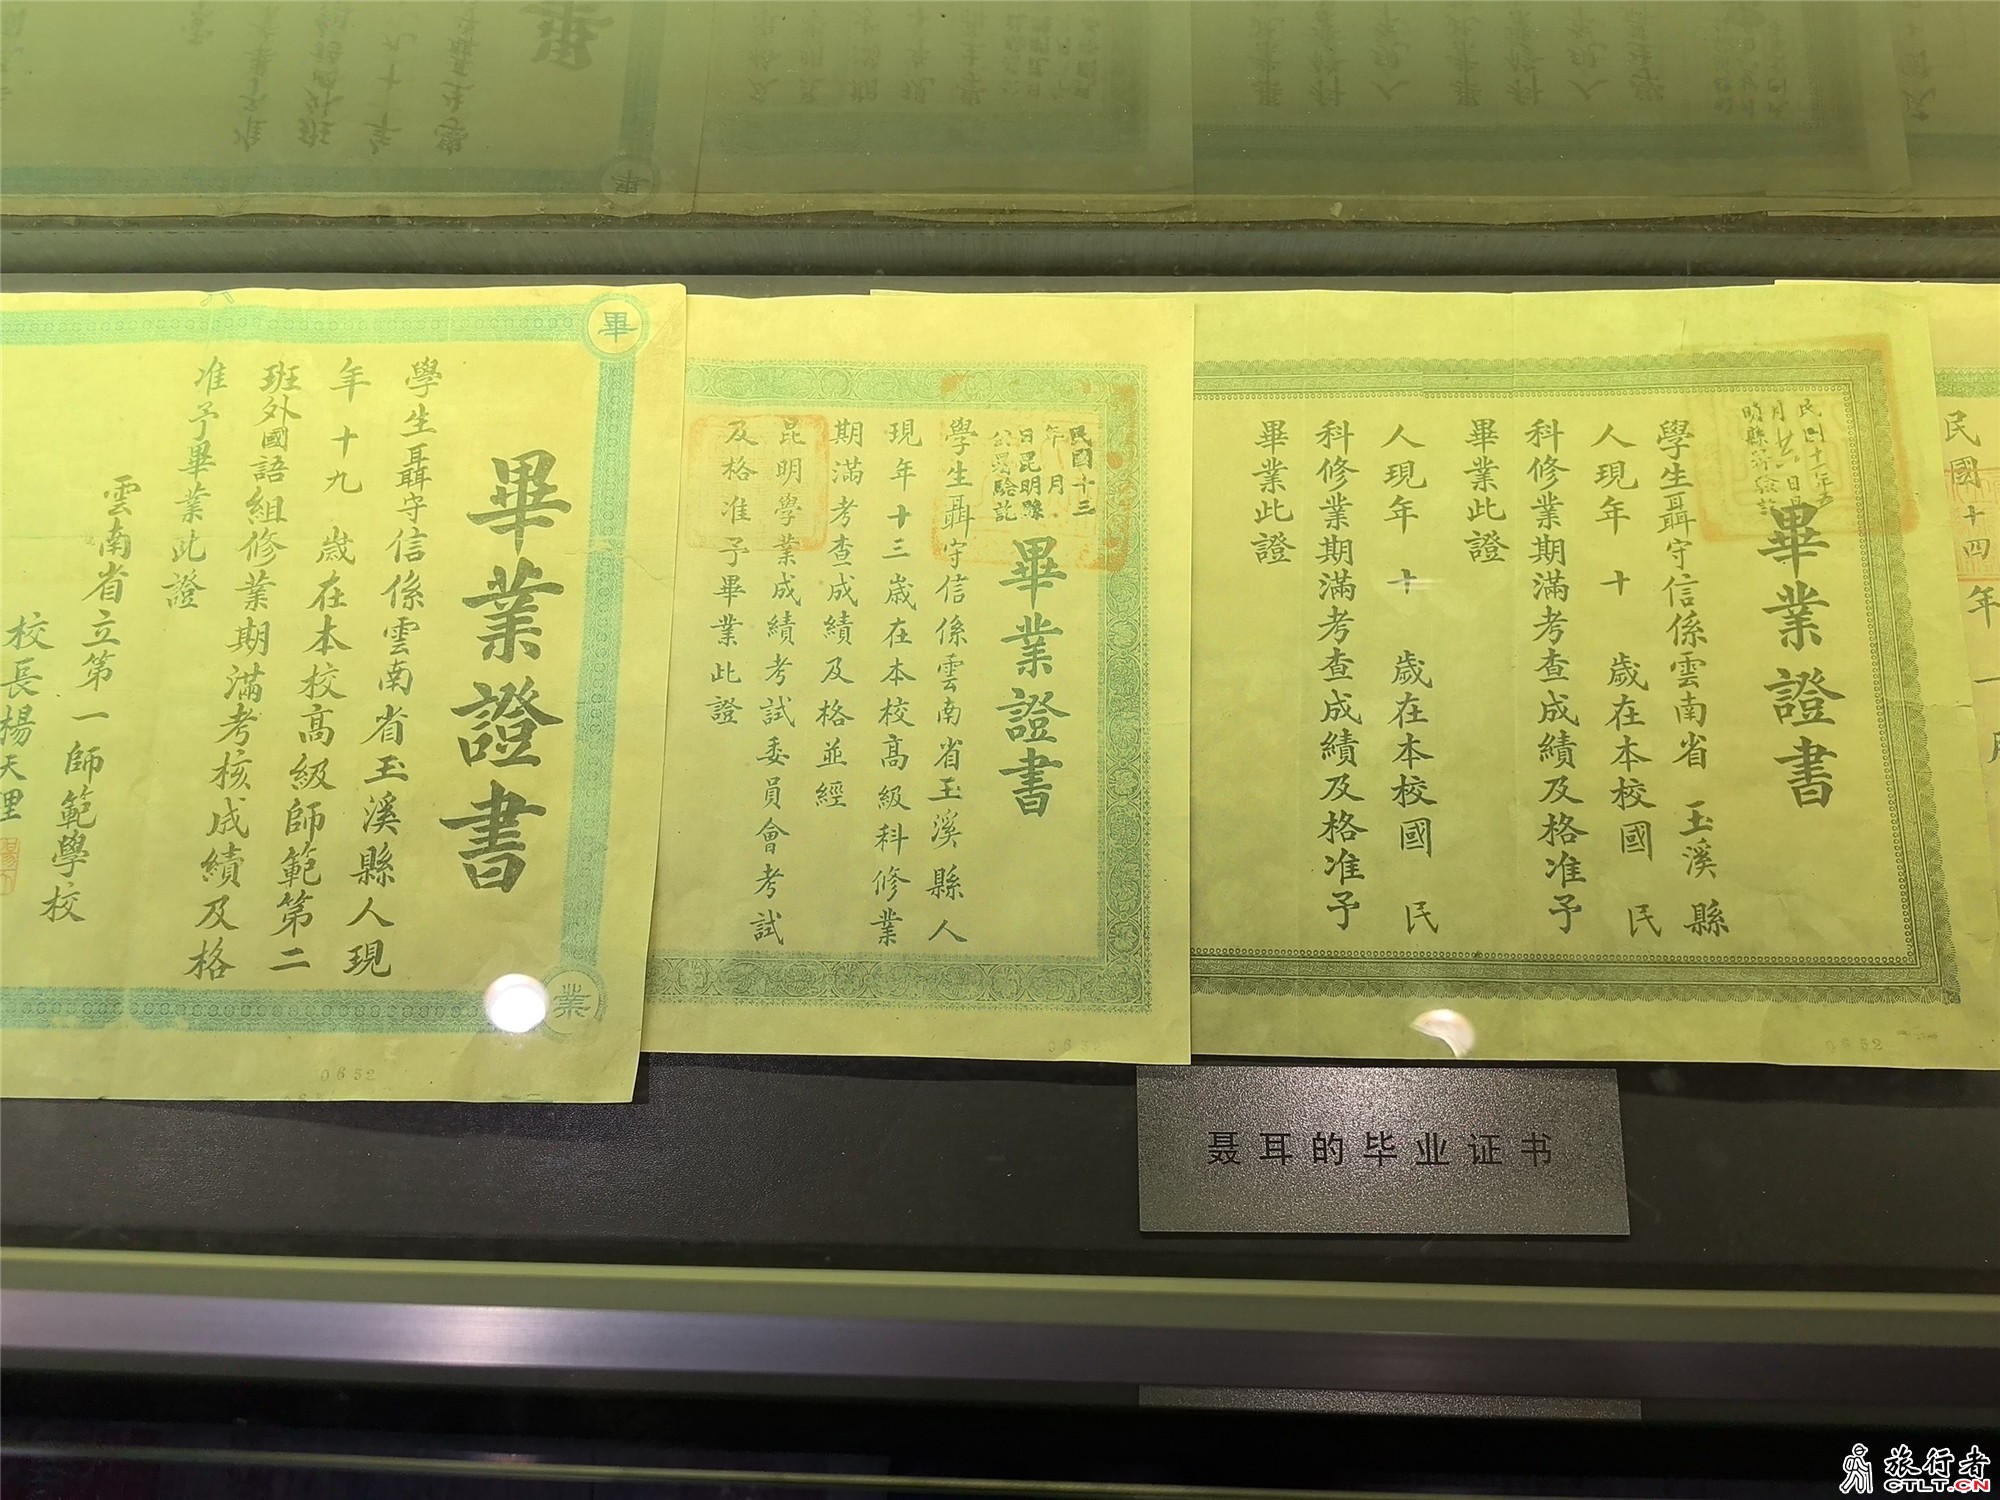 畢
畢業證書
學生聶守信係雲南省玉溪縣人現
年十九歲在本校高級師範第二
班外國語組修業期滿考核成績及格
准予畢業此證
雲南省立第一師範學校
校長楊天里
業
0652
民國十三
年 月
日昆明縣
公署驗訖
畢業證書
學生聶守信係雲南省玉溪縣人
現年十三歲在本校高級科修業
期滿考查成績及格並經
昆明學業成績考試委員會考試
及格准予畢業此證
0652
畢業證書
學生聶守信係雲南省 玉溪 縣
人現年 十 歲在本校國 民
科修業期滿考查成績及格准予
畢業此證
人現年 十 歲在本校國 民
科修業期滿考查成績及格准予
畢業此證
0652
民國十四年一月
聂耳的毕业证书
旅行者
CTLT.CN